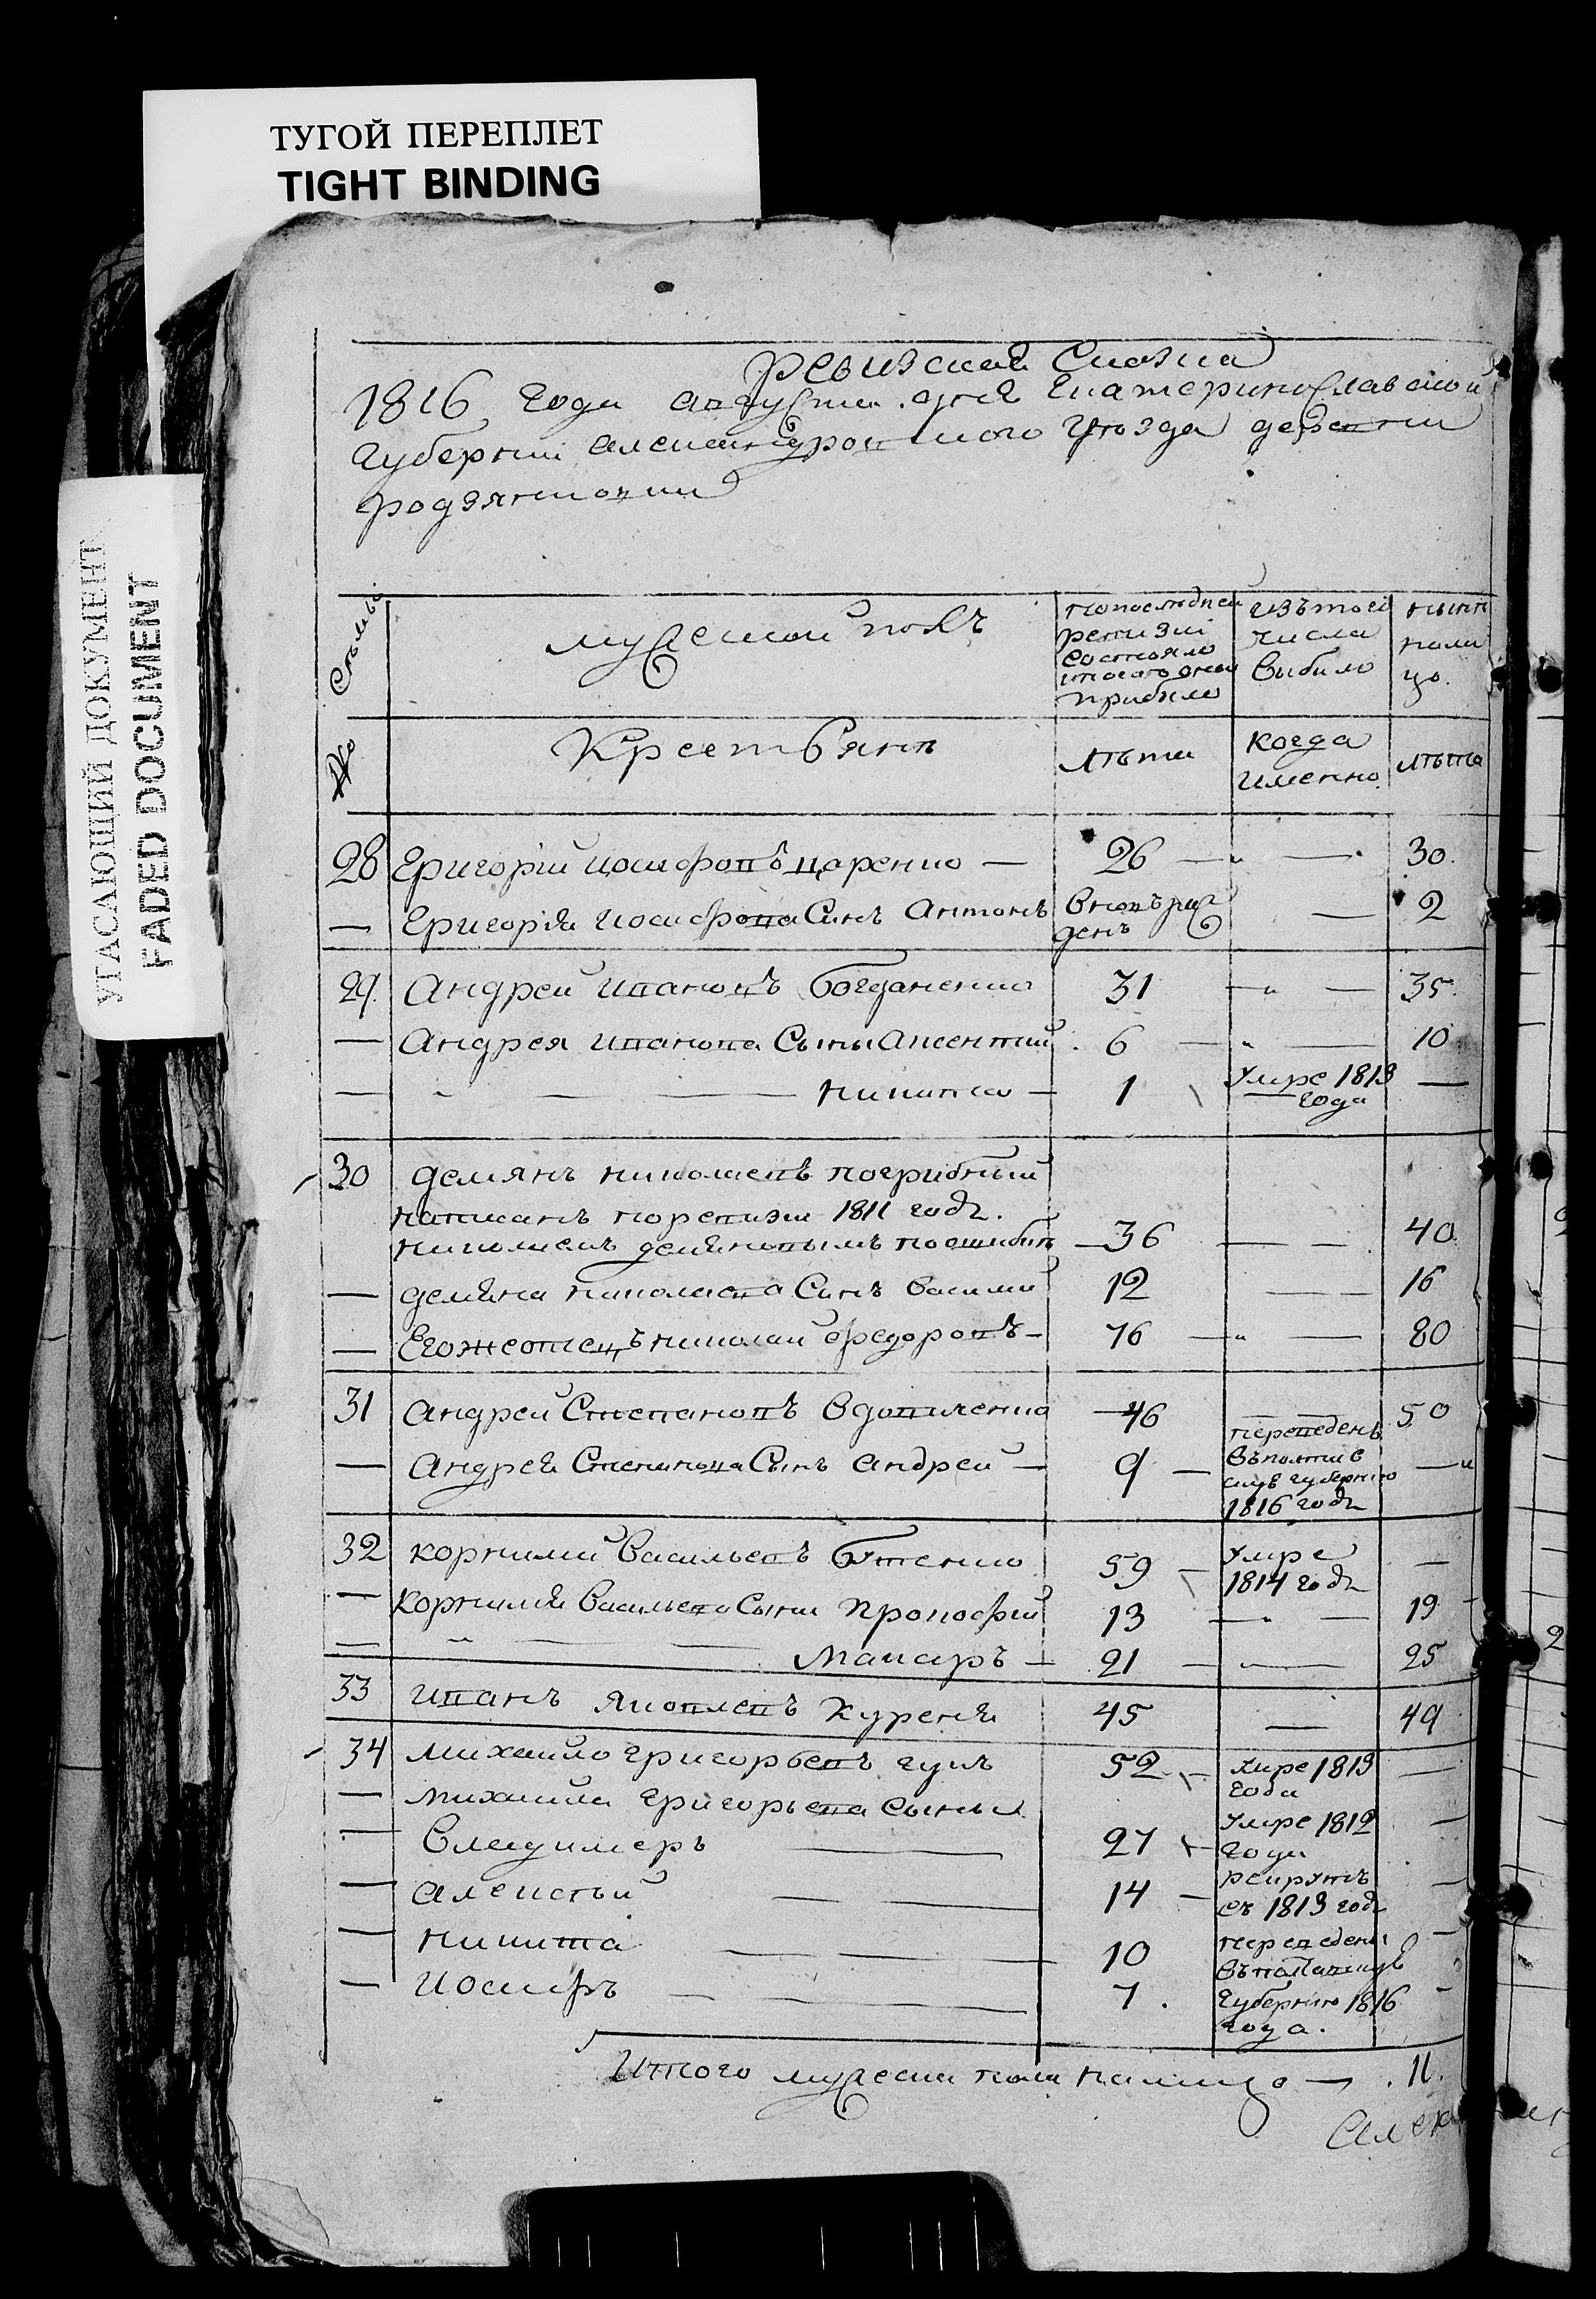 ТУГОЙ ПЕРЕПЛЕТ
TIGHT BINDING
УГАСАЮЩИЙ ДОКУМЕНТ
FADED DOCUMENT
Ревизская Сказка
1816 года августа дня Екатеринославской
Губернии Александровского уѣзда деревни
родзянковки
Семьи
мужеской полъ
по последней
ревизии
состояло
прибыло
изъ того
числа
выбыло
нынѣ
нали
цо.
№
Крестьянѣ
лѣта
когда
именно
лѣта
28 Григорій иосифовъ царенко — 26 — " — 30.
— Григорія иосифова Сынъ Антонъ вновьрож
денъ — 2
29 Андрей ивановъ богданенко 31 — " — 35.
— Андрея иванова Сыны Аксентий 6 — " — 10
— " — никита — 1 умре 1813
года —
30 демянъ николаевъ погрибный
написанъ по ревизии 1811 года
николаемъ демяновымъ по ошибкѣ — 36 — — 40
— демяна николаева Сынъ василий 12 — — 16
— Егожеотецъ николай федоровъ — 76 — " — 80
31 андрей Степановъ вдовиченко 46 — 50
— андрея Степанова Сынъ андрей — 9 — переведенъ
въ полтав
скую губернию
1816 года — "
32 корнилий васильевъ бутенко 59 — умре
1814 года —
— корнилия васильева Сыны прокофий 13 — " — 19
— " — макаръ — 21 — " — 25
33 иванъ яковлевъ куреня 45 — 49
34 михайло григорьевъ гула 52 — умре 1813
года —
— михайла григорьева сыны
— владимеръ — 27 — умре 1812
года —
— алексѣй — 14 — рекрутъ
съ 1813 года —
— никита — 10 переведены
въ полтавскую
— иосифъ — 7. Губернию 1816
года. —
Итого мужеска пола налицо — 11.
Алек